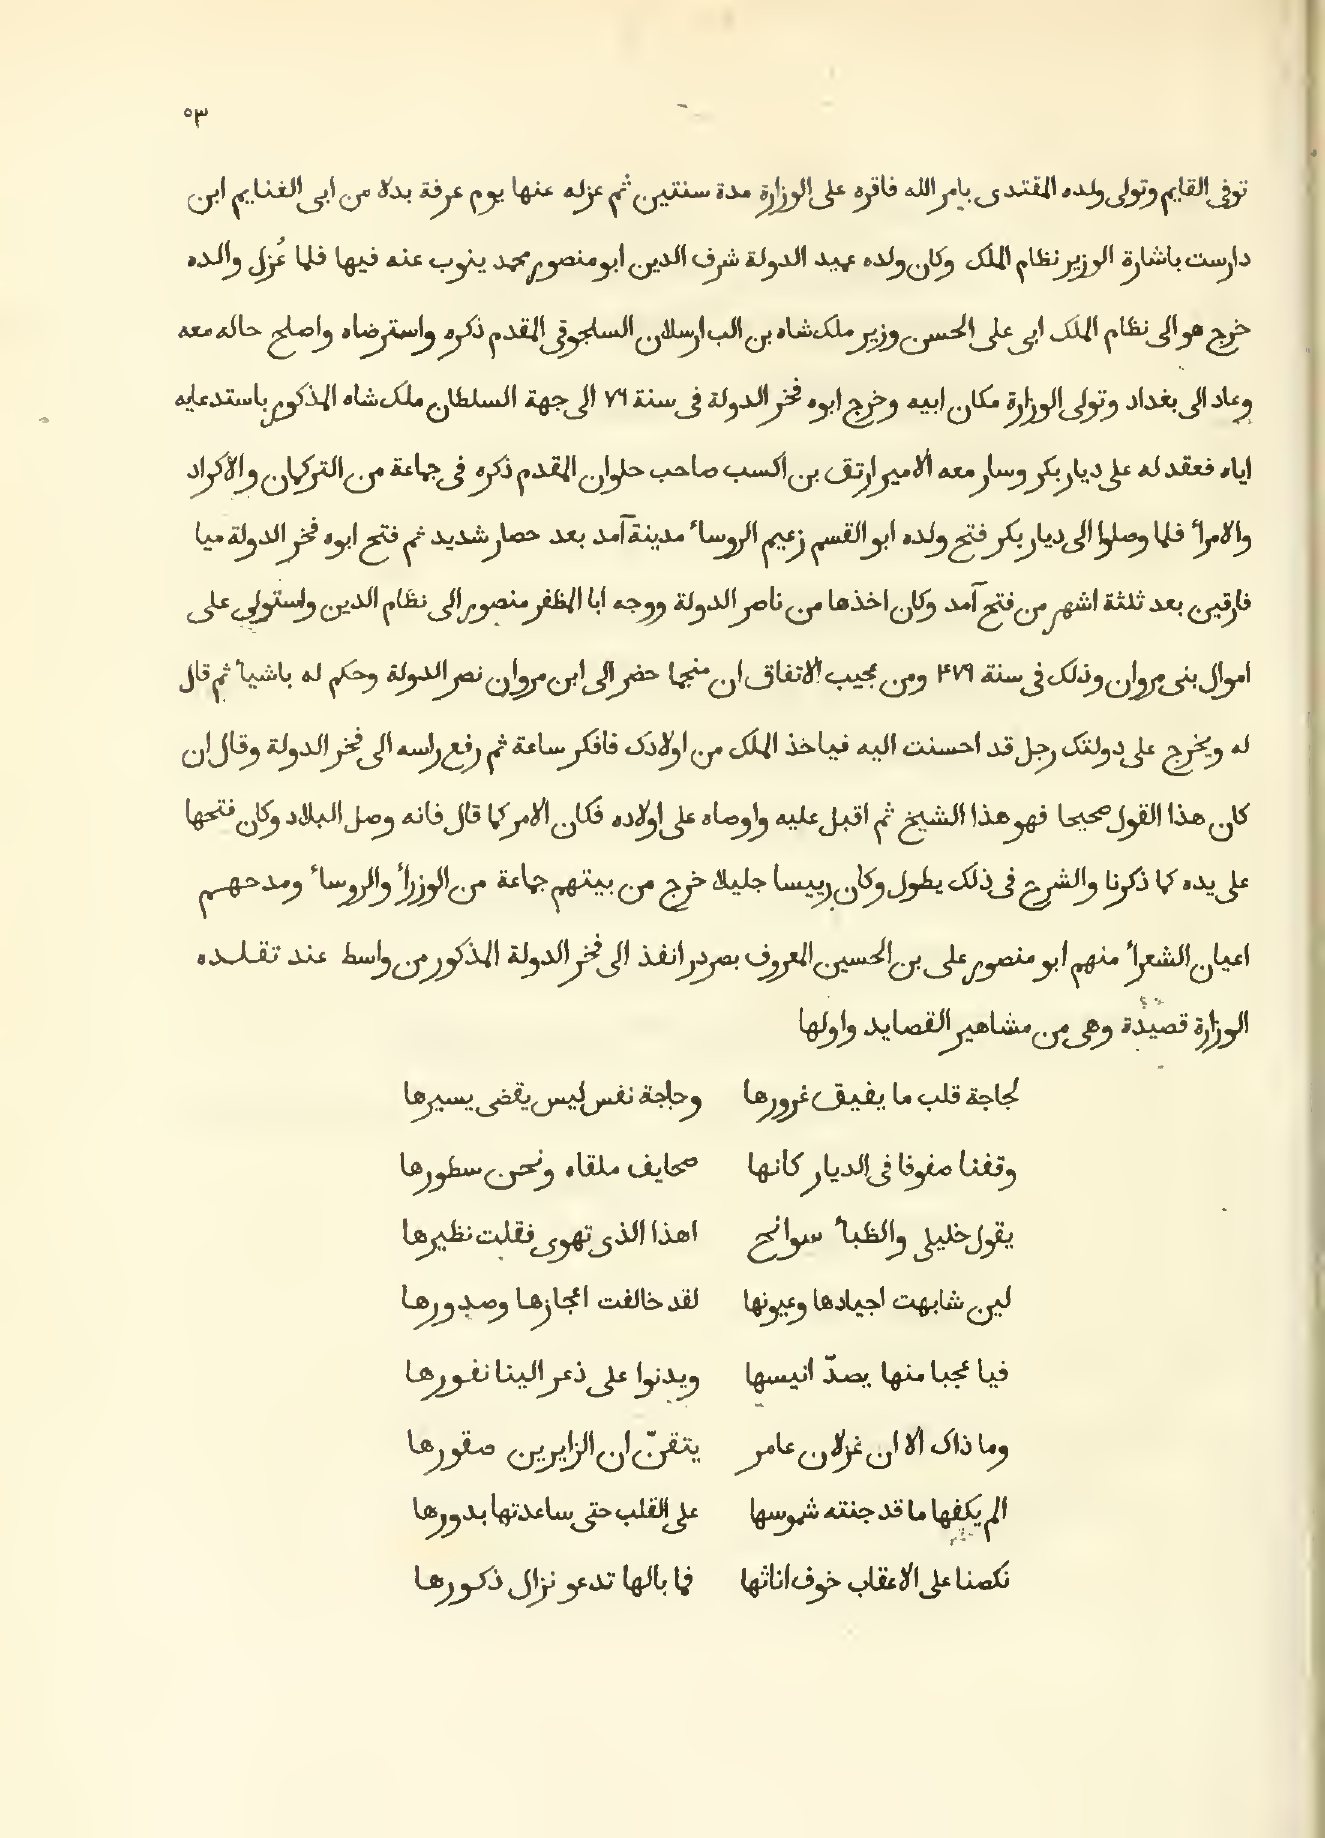 ٥٣
توفى القايم وتولى ولده المقتدى بامر الله فاقره على الوزارة مدة سنتين ثم عزله عنها يوم عرفة بدلا من ابى الغنايم ابن
دارست باشارة الوزير نظام الملك وكان ولده عميد الدولة شرف الدين ابو منصور محمد ينوب عنه فيها فلما عُزل والده
خرج هو الى نظام الملك ابى على الحسن وزير ملك شاه بن الب ارسلان السلجوقى المقدم ذكره واسترضاه واصلح حاله معه
وعاد الى بغداد وتولى الوزارة مكان ابيه وخرج ابوه فخر الدولة فى سنة ٧٦ الى جهة السلطان ملك شاه المذكور باستدعايه
اياه فعقد له على ديار بكر وسار معه الامير ارتق بن اكسب صاحب حلوان المقدم ذكره فى جماعة من التركمان والاكراد
والامرأ فلما وصلوا الى ديار بكر فتح ولده ابو القسم زعيم الروسأ مدينة آمد بعد حصار شديد ثم فتح ابوه فخر الدولة ميا
فارقين بعد ثلثة اشهر من فتح آمد وكان اخذها من ناصر الدولة ووجه ابا المظفر منصور الى نظام الدين واستولى على
اموال بنى مروان وذلك فى سنة ٤٧٩ ومن عجيب الاتفاق ان منجما حضر الى ابن مروان نصر الدولة وحكم له باشيأ ثم قال
له ويخرج على دولتك رجل قد احسنت اليه فياخذ الملك من اولادك فافكر ساعة ثم رفع راسه الى فخر الدولة وقال ان
كان هذا القول صحيحا فهو هذا الشيخ ثم اقبل عليه واوصاه على اولاده فكان الامر كما قال فانه وصل البلاد وكان فتحها
على يده كما ذكرنا والشرح فى ذلك يطول وكان رييسا جليلا خرج من بيتهم جماعة من الوزرأ والروسأ ومدحهم
اعيان الشعرأ منهم ابو منصور على بن الحسين المعروف بصردر انفذ الى فخر الدولة المذكور من واسط عند تقلده
الوزارة قصيدة وهى من مشاهير القصايد واولها
لجاجة قلب ما يفيق غرورها وحاجة نفس ليس يقضى يسيرها
وقفنا صفوفا فى الديار كانها صحايف ملقاه ونحن سطورها
يقول خليلى والظبأ سوانح اهذا الذى تهوى فقلت نظيرها
لين شابهت اجيادها وعيونها لقد خالفت اعجازها وصدورها
فيا عجبا منها يصدّ انيسها ويدنوا على ذعر الينا نفورها
وما ذاك الا ان غزلان عامر يتقنّ ان الزايرين صقورها
الم يكفها ما قد جنته شموسها على القلب حتى ساعدتها بدورها
نكصنا على الاعقاب خوف اناثها فما بالها تدعو نزال ذكورها